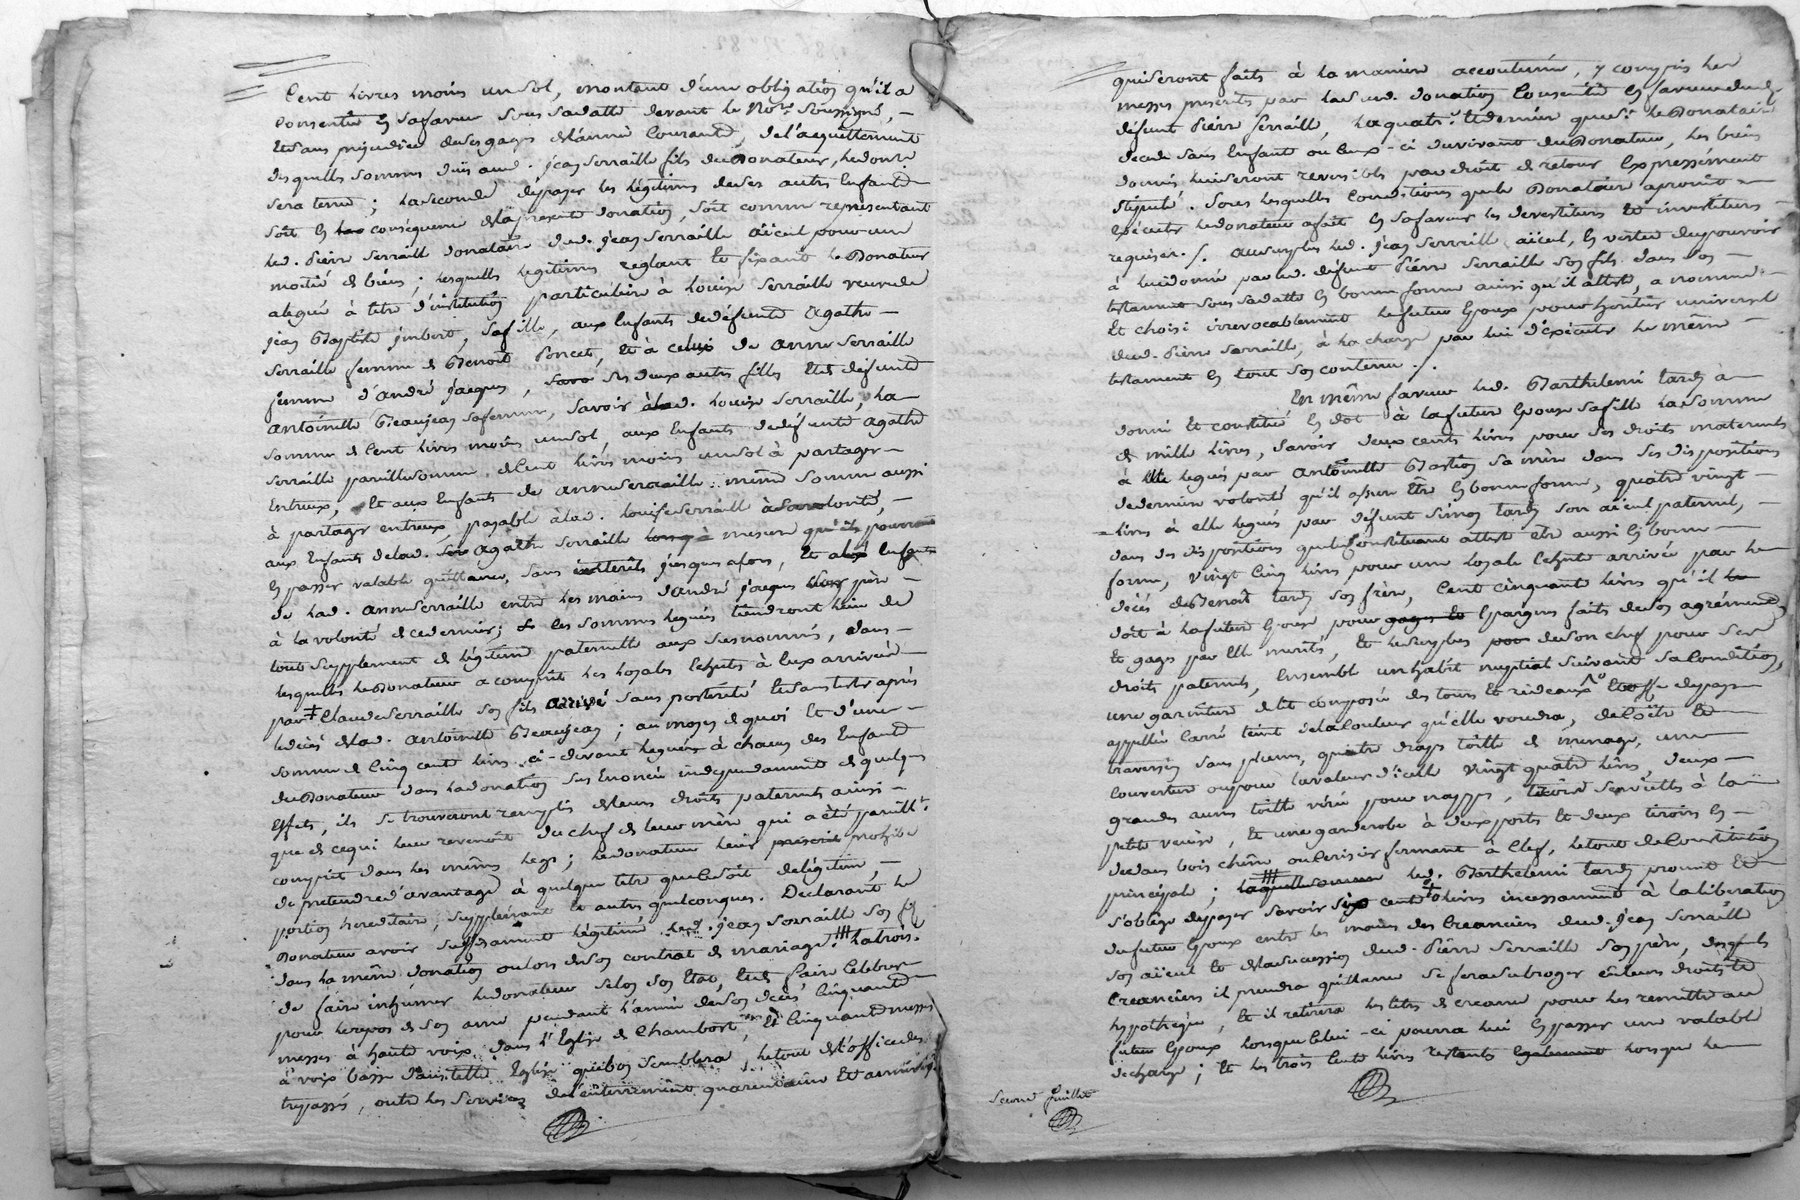 Cent livres moins un sol, montant d'une obligation qu'il a
consentie en sa faveur sous sa datte devant le No.re soussigné, —
et sans préjudice de ses gages de l'année courante, de l'acquittement
desquelles sommes dues aud. jean serraille fils du Donateur, led.
sera tenu ; la seconde de payer les légitimes de ses autres Enfants
soit en conséquence de la présente donation, soit comme representant
led. Pierre Serraille donataire dud. jean serraille aïeul pour une
moitié de biens ; lesquelles legitimes reglant et fixant le Donateur
a légué à titre d'institution particuliere à Louise Serraille veuve de
jean Baptiste jmbert, sa fille, aux Enfants de défunte Agathe —
serraille femme de Benoit Poncet, et à celui de Anne Serraille
femme d'André jacques, ses deux autres filles et de défunte
Antoinette Beaujean sa femme, savoir à lad. Louise serraille, la
somme de Cent livres moins un sol, aux Enfants de défunte Agathe
serraille pareille somme de Cent livres moins un sol à partager —
Entreux, et aux Enfants de Anne serraille même somme aussi
à partager entreux, payable à lad. Louise serraille à sa volonté, —
aux Enfants de lad. Agathe serraille à mesure qu'ils pourront
En passer valable quittance, sans interêts jusques alors, et aux Enfants
de lad. Anne serraille entre les mains d'andré jacques leur père —
à la volonté de ce dernier ; les sommes leguées tiendront lieu de
tout supplement de légitime paternelle aux susnommés, dans —
lesquelles le Donateur a compris les loyales echutes à Eux arrivées
par Claude Serraille son fils arrivé sans postérité et sans tests après
le décès de lad. Antoinette Beaujean ; au moyen de quoi et d'une —
somme de Cinq cent livres ci-devant leguée à chacun des Enfants
du Donateur dans la donation sus Enoncée independament de quelques
Effets, ils se trouveront remplis de leurs droits paternels ainsi —
que de ce qui leur revenoit du chef de leur mère qui a été pareill.t
compris dans les mêmes legs ; le donateur leur prohibe
de pretendre d'avantage à quelque titre que ce soit de légitime, —
portion hereditaire, supplément et autres quelconques. Declarant le
Donateur avoir suffisament légitimé led. jean serraille son fils
dans la même donation ou lors de son contrat de mariage. la trois.
de faire inhumer le donateur selon son Etat, et de faire celebrer
pour le repos de son ame pendant l'année de son décès Cinquante
messes à haute voix dans l'Eglise de Chambost, et Cinquante messes
à voix basse dans telle Eglise qui bon semblera, le tout de l'office des
trepassés, outre les Services de enterrement quarantaine et
qui seront faits à la manière accoutumée, y compris les
messes prescrites par la susd. donation Consentie en faveur dud.
défunt Pierre serraille, la quatr.e et dernière que si le Donataire
decede sans Enfant ou Eux-ci du vivant du Donateur, les biens
donnés lui seront reversibles par droit de retour Expressément
stipulé. Sous lesquelles Conditions que le Donataire a promit
exécuter le donateur a fait en sa faveur les devestitures et investitures —
requises ./. Au surplus led. jean serraille aïeul, en vertu du pouvoir
à lui donné par led. défunt Pierre serraille son fils dans son —
testament sous sa datte en bonne forme ainsi qu'il atteste, a nommé —
Et choisi irrevocablement le futur Epoux pour heritier universel
dud. Pierre serraille, à la charge par lui d'exécuter le même —
testament en tout son contenu ./.
En même faveur led. Barthelemi tardy a
donné et constitué en dot à la future Epouse sa fille la somme
de mille livres, savoir deux cents livres pour ses droits maternels
à Elle legués par Antoinette Bastion sa mère dans ses dispositions
de derniere volonté qu'il assure être en bonne forme, quatre vingt —
livres à elle legués par défunt Simon tardy son aïeul paternel, —
dans ses dispositions que le Constituant atteste etre aussi en bonne —
forme, vingt Cinq livres pour une loyale Echute arrivée par le
décès de Benoit tardy son frère, Cent cinquante livres qu'il
doit à la future Epouse pour Epargnes faits de son agrément
et gages par Elle mérités, et le surplus de son chef pour ses
droits paternels, Ensemble un habit nuptial suivant sa Condition,
une garniture de lit composée des tours et rideaux d'étoffe de pays
appellée Carré teint de la Couleur qu'elle voudra, de la Coëtre et
traversin sans plume, quatre draps toille de menage, une
Couverture ou pour la valeur d'icelle vingt quatre livres, deux —
grandes aunes toille pour nappes, Serviettes à la
petite venise, et une garderobe à deux portes et deux tiroirs en —
dedans bois chêne ou Cerisier fermant à Clef, le tout de Constitution
principale ; led. Barthelemi tardy promet et
s'oblige de payer savoir cents livres incessament à la liberation
du futur Epoux entre les mains des Creanciers dud. jean serraille
son aïeul et de la succession dud. Pierre serraille son père, desquels
Creanciers il prendra quittance se fera subroger en leurs droits et
hypothèque, et il retirera les titres de creance pour les remettre au
futur Epoux lorsque Celui-ci pourra lui En passer une valable
decharge ; Et les trois Cents livres restants lorsque le
Second feuillet